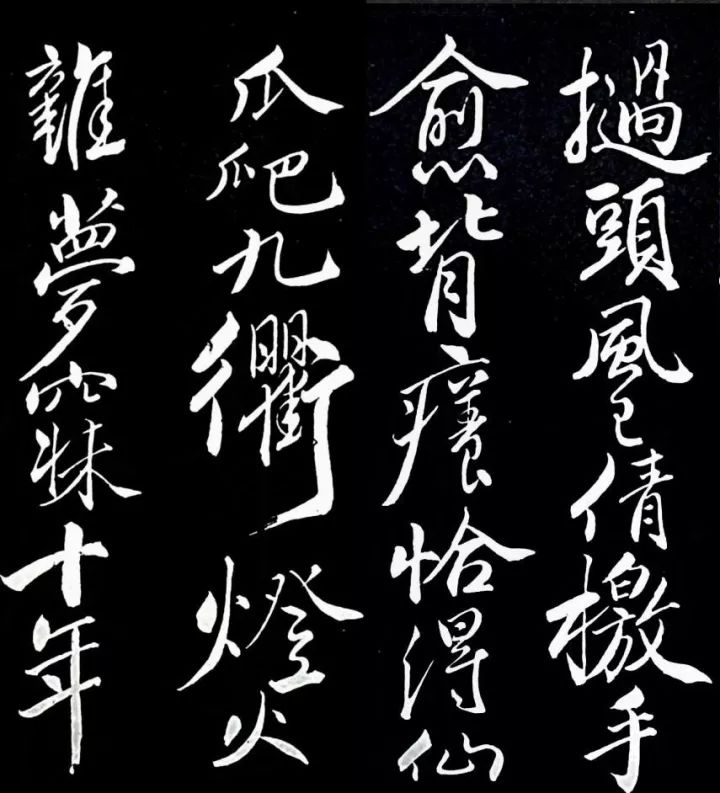 撾頭風已倩檄手
愈背癢恰得仙
爪爬九衢燈火
雜夢寐十年